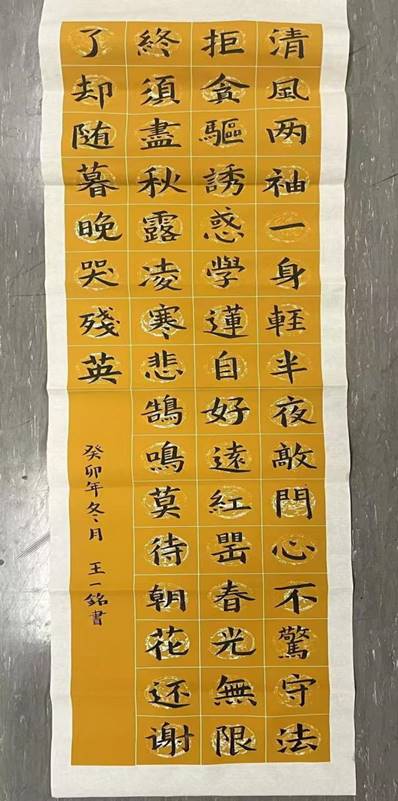 清風两袖一身軽半夜敲門心不驚守法
拒貪驅誘惑學蓮自好遠紅罌春光無限
終須盡秋露凌寒悲鵠鳴莫待朝花还谢
了却随暮晚哭殘英
癸卯年冬月 王一銘書